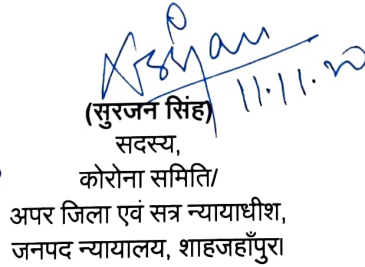 11.11.20
(सुरजन सिंह)
सदस्य,
कोरोना समिति/
अपर जिला एवं सत्र न्यायाधीश,
जनपद न्यायालय, शाहजहाँपुर।